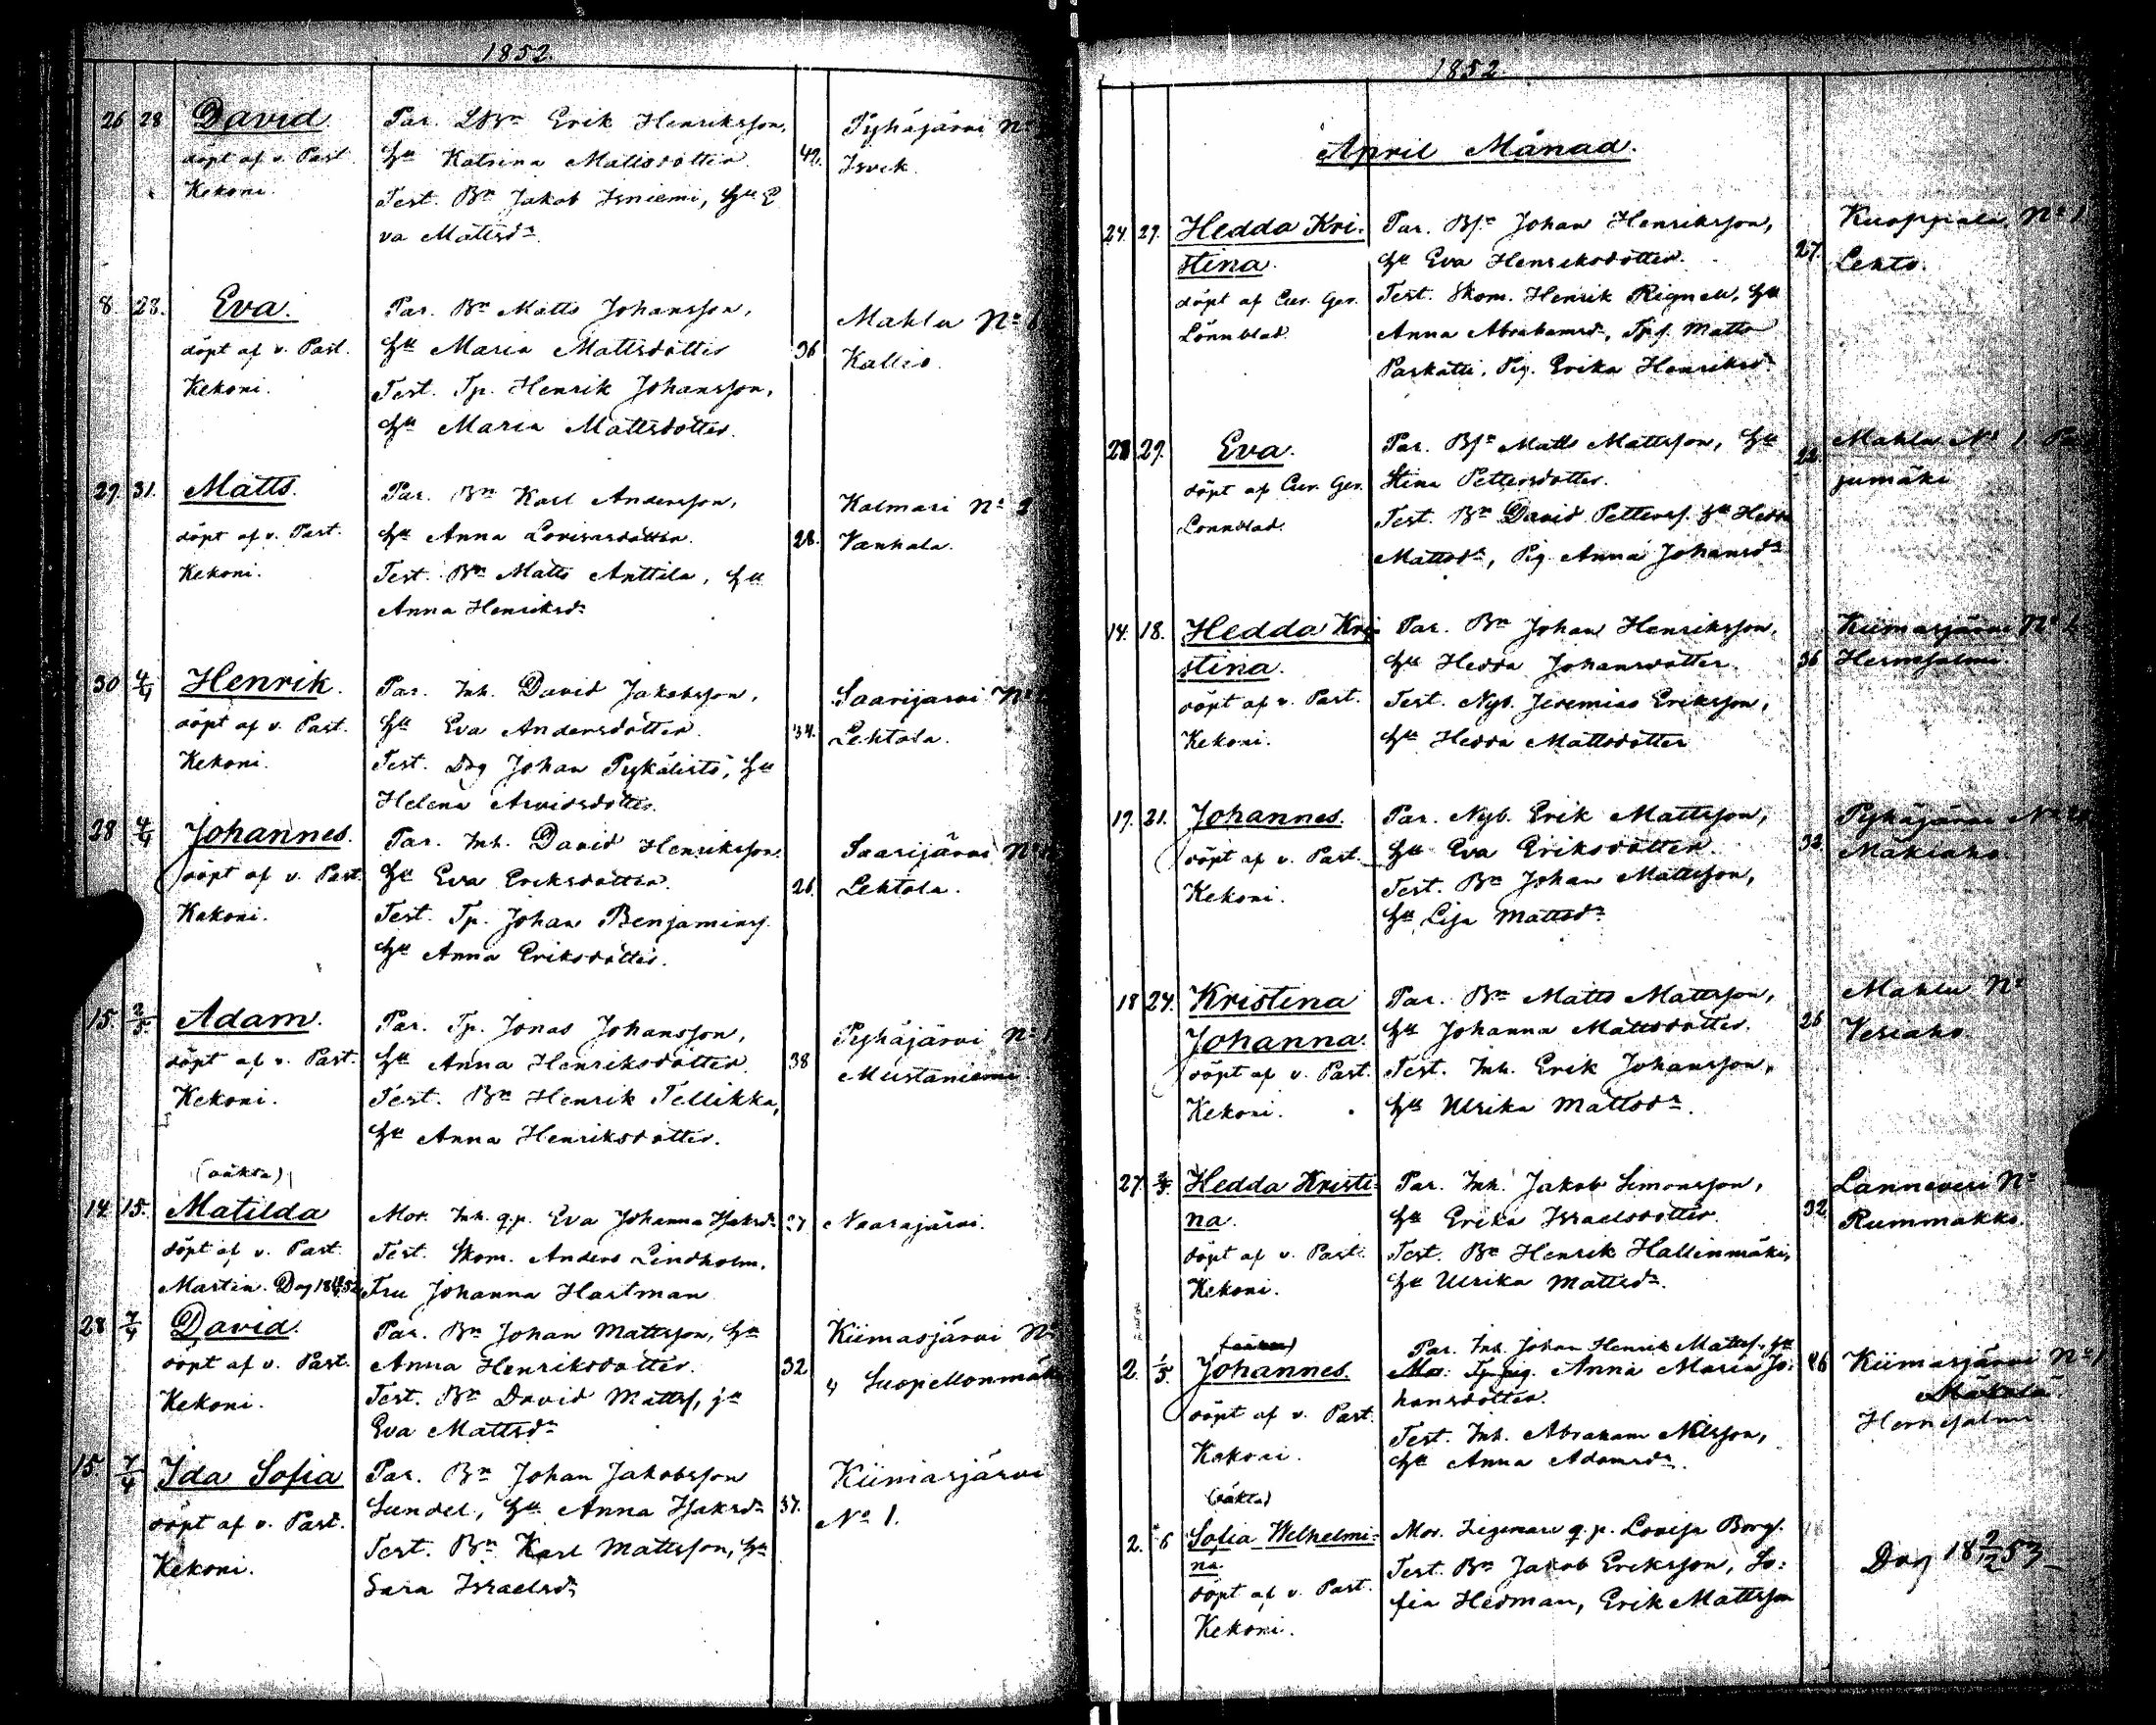 1852.
26 28 David. Par. Erik Henriksson,
döpt af v. Past. Hu Katrina Mattsdotter 42. Pyhäjärvi No
Kekoni. Test. Bn Jakob Isniemi, Hu E
va Mattsdr
8. 28. Eva. Par. Bn Matts Johansson, Mahlu No 1
döpt af v. Past. Hu Maria Mattsdotter 36 Kallio.
Kekoni. Test. Tp. Henrik Johansson,
Hu Maria Mattsdotter.
29. 31. Matts. Par. Bn Karl Andersson, Kalmari No
döpt af v. Past. Hu Anna 28. Vanhala.
Kekoni. Test. Bn Matts Anttila, Hu
Anna Henriksdr
30 4/4 Henrik. Par. Inh. David Jakobsson, Saarijärvi No
döpt af v. Past. Hu Eva Andersdotter 34. Lehtola.
Kekoni. Test. Johan Pykälistö, Hu
Helena Arvidsdotter.
28 4/4 Johannes. Par. Inh. David Henriksson. Saarijärvi No
döpt af v. Past. Hu Eva Eriksdotter. 26. Lehtola.
Kekoni. Test. Tp. Johan Benjamins.
Hu Anna Eriksdotter.
15. 2/5 Adam. Par. Tp. Jonas Johansson, Pyhäjärvi No 1
döpt af v. Past. Hu Anna Henriksdotter 38 Mustaniemi
Kekoni. Test. Bn Henrik Tellikka,
Hu Anna Henriksdotter.
(oäkta)
14. 15. Matilda Mor. Inh. q.p. Eva Johanna Isaksdr 27 Naarajärvi.
döpt af v. Past. Test. Skom. Anders Lindholm,
Martin. Fru Johanna Hartman
28 7/4 David. Par. Bn Johan Mattsson, Hu Kiimasjärvi No
döpt af v. Past. Anna Henriksdotter. 32 4 Suopellonmäki
Kekoni. Test. Bn David Mattss, Hu
Eva Mattsdr
15 7/4 Ida Sofia Par. Bn Johan Jakobsson Kiimasjärvi
döpt af v. Past. Sundel, Hu Anna Isaksdr 37. No 1.
Kekoni. Test. Bn Karl Mattsson, Hu
Sara Israelsdr
1852.
April Månad.
24. 29. Hedda Kri- Par. Bs. Johan Henriksson, Kuoppala No 1
stina. Hu Eva Henriksdotter. 27. Lehto.
döpt af Cur. Ger. Test. Skom. Henrik Rignell, Hu
Lönnblad. Anna Abrahamsdr, Tps. Matts
Paskatti, Pig. Erika Henriksdr
28 29. Eva. Par. Bs. Matts Mattsson, Hu Mahlu No 1
döpt af Cur. Ger. Stina Pettersdotter. 22. jumäki
Lönnblad. Test. Bn David Petterss. Hu Hedda
Mattsdr, Pig. Anna Johansdr
14. 18. Hedda Kri- Par. Bn Johan Henriksson, Kiimasjärvi No
stina. Hu Hedda Johansdotter. 36 Hernesalmi.
döpt af v. Past. Test. Nyb. Jeremias Eriksson,
Kekoni. Hu Hedda Mattsdotter
19. 21. Johannes. Par. Nyb. Erik Mattsson, Pyhäjärvi No
döpt af v. Past. Hu Eva Eriksdotter. 32. Mäkiaho.
Kekoni. Test. Bn Johan Mattsson,
Hu Lisa Mattsdr
18 24. Kristina Par. Bn Matts Mattsson, Mahlu No
Johanna. Hu Johanna Mattsdotter. 26 Vesiaho.
döpt af v. Past. Test. Inh. Erik Johansson,
Kekoni. Hu Ulrika Mattsdr.
27. 2/5 Hedda Kristi- Par. Inh. Jakob Simonsson, Lannevesi No
na. Hu Erika Israelsdotter. 32. Rummakko.
döpt af v. Past. Test. Bn Henrik Hallinmäki,
Kekoni. Hu Ulrika Mattsdr.
(oäkta) Par. Inh. Johan Henrik Mattss. Hu
2. 1/5. Johannes. Mor: Anna Maria Jo- 26 Kiimasjärvi No 1
döpt af v. Past. hansdotter. Mäkelä.
Kekoni. Test. Inh. Abraham Nilsson, Hernesalmi
Hu Anna Adamsdr.
(oäkta)
2. 6 Sofia Wilhelmi- Mor. q.p. Lovisa Borg. Dog 18 2/12 53
na Test. Bn Jakob Eriksson, So-
döpt af v. Past. fia Hedman, Erik Mattsson
Kekoni.